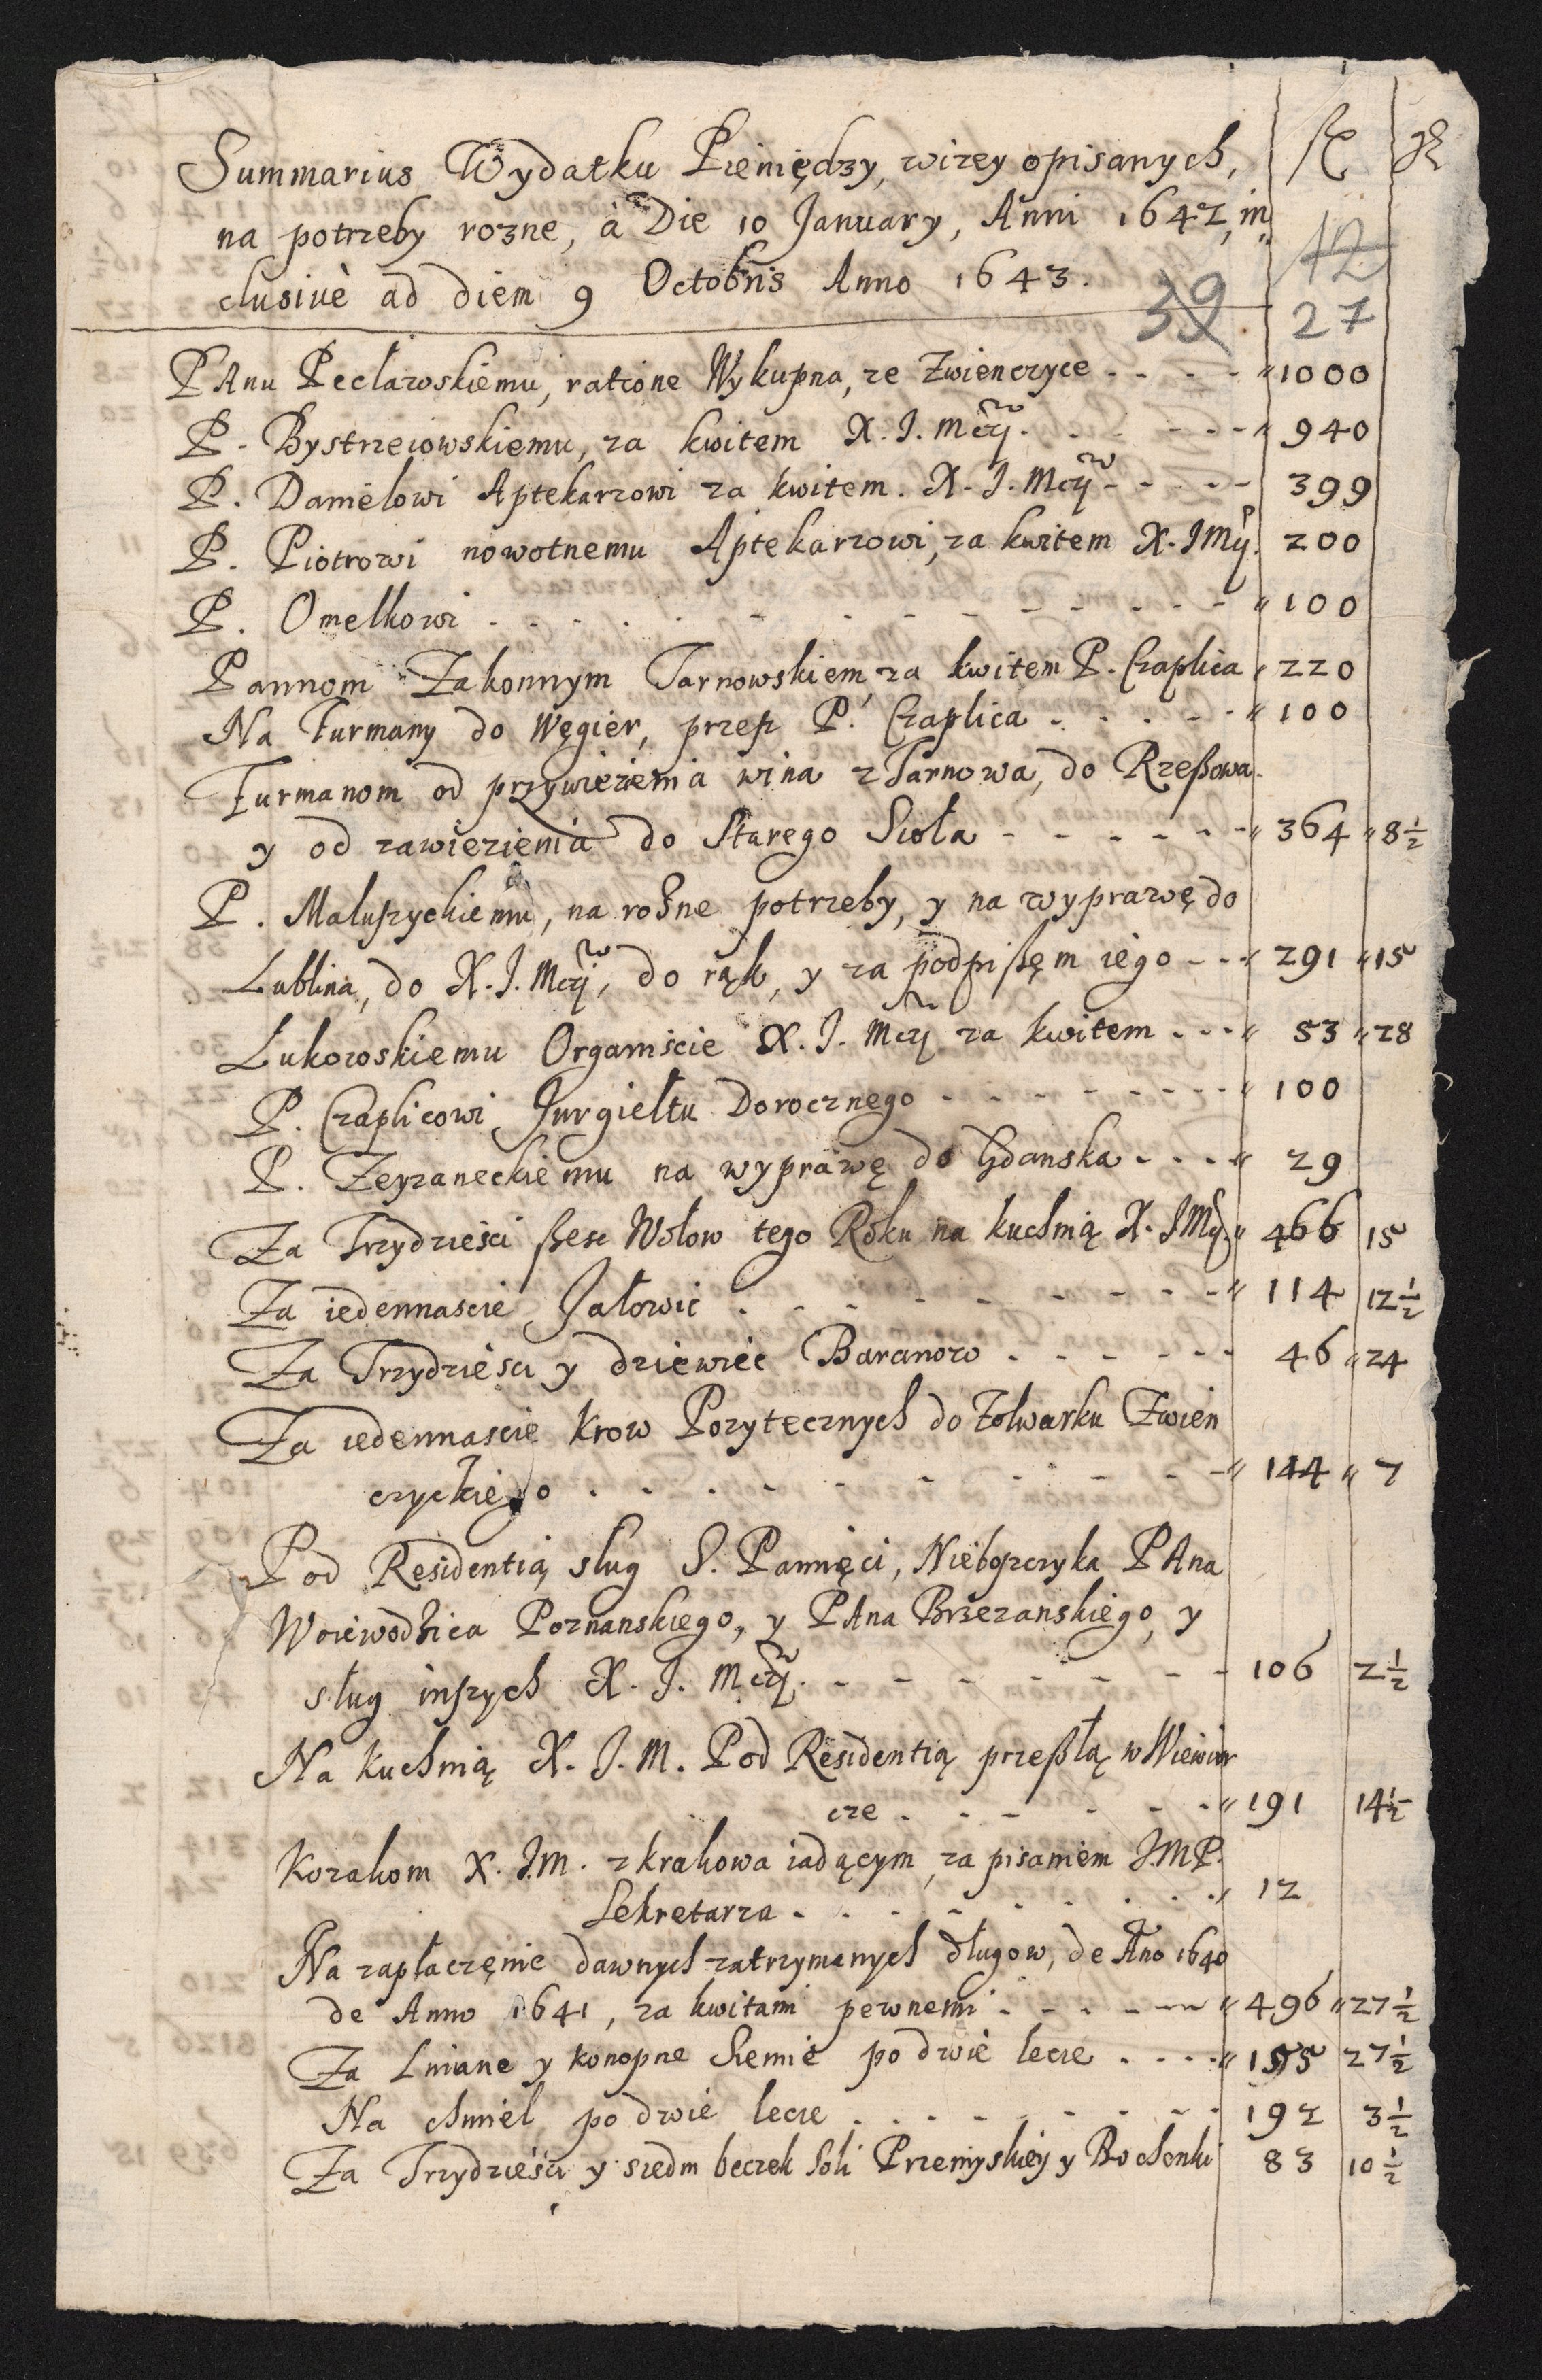 Summarius Wydatku Pieniędzy, wizey opisanych, fl gr
na potrzeby rozne, à Die 10 January, Anni 1642, in
clusiuè ad diem 9 Octobris Anno 1643.
12
39 27
PAnu Peclawskiemu, ratione Wykupna, ze Zwienczyce - - - - " 1000
P. Bystrzeiowskiemu, za kwitem X. J. Mczi. - - - " 940
P. Danielowi Aptekarzowi za kwitem. X. J. Mczi - - - - 399
P. Piotrowi nowotnemu Aptekarzowi, za kwitem X. JMÿ. 200
P. Omelkowi - - - - - - - - - - " 100
Pannom Zakonnym Tarnowskiem za kwitem P. Czaplica " 220
Na Furmany do Węgier, przesz P. Czaplica - - - - " 100
Furmanom od przywiezienia wina z Tarnowa, do Rzeßowa
y od zawiezienia do Starego Sioła - - - - - - " 364 " 8½
P. Maluszyckiemu, na rożne potrzeby, y na wyprawę do
Lublina, do X. J. Mczi, do rąk, y za podpißęm iego - - " 291 " 15
Lukowskiemu Organiście X. J. Mczi za kwitem - - - " 53 " 28
P. Czaplicowi Jurgieltu Dorocznego - - - - - - - " 100
P. Zeyzaneckiemu na wyprawę do Gdanska - - - " 29
Za Trzydzieści ßesc Wołow tego Roku na kuchnią X. JMÿ " 466 15
Za iedennascie Jałowic - - - - - - - - " 114 12½
Za Trzydzieści y dziewiec Baranow - - - - - - 46 " 24
Za iedennascie Krow Pozytecznych do Folwarku Zwien
czyckiego - - - - - - - - - " 144 " 7
Pod Residentią sług S. Pamięci, Nieboszczyka PAna
Woiewodzica Poznanskiego, y PAna Brzezanskiego, y
sług inszych X. J. Mczi. - - - - - - - - 106 2½
Na kuchnią X. J. M. Pod Residentią przeßłą w Wiewior
cze - - - - - - " 191 14½
Kozakom X. J.M. z krakowa iadącym, za pisaniem J.M.P.
Sekretarza - - - - - - - - " 12
Na zapłaczęnie dawnych zatrzymanych długow, de Ano 1640
de Anno 1641, za kwitami pewnemi - - - - - " 496 " 27½
Za Lniane y konopne Siemie po dwie lecie - - - - " 155 27½
Na chmiel po dwie lecie - - - - - - - - 192 3½
Za Trzydzieści y siedm beczek Soli Przemyskiey y Bochenki 83 10½